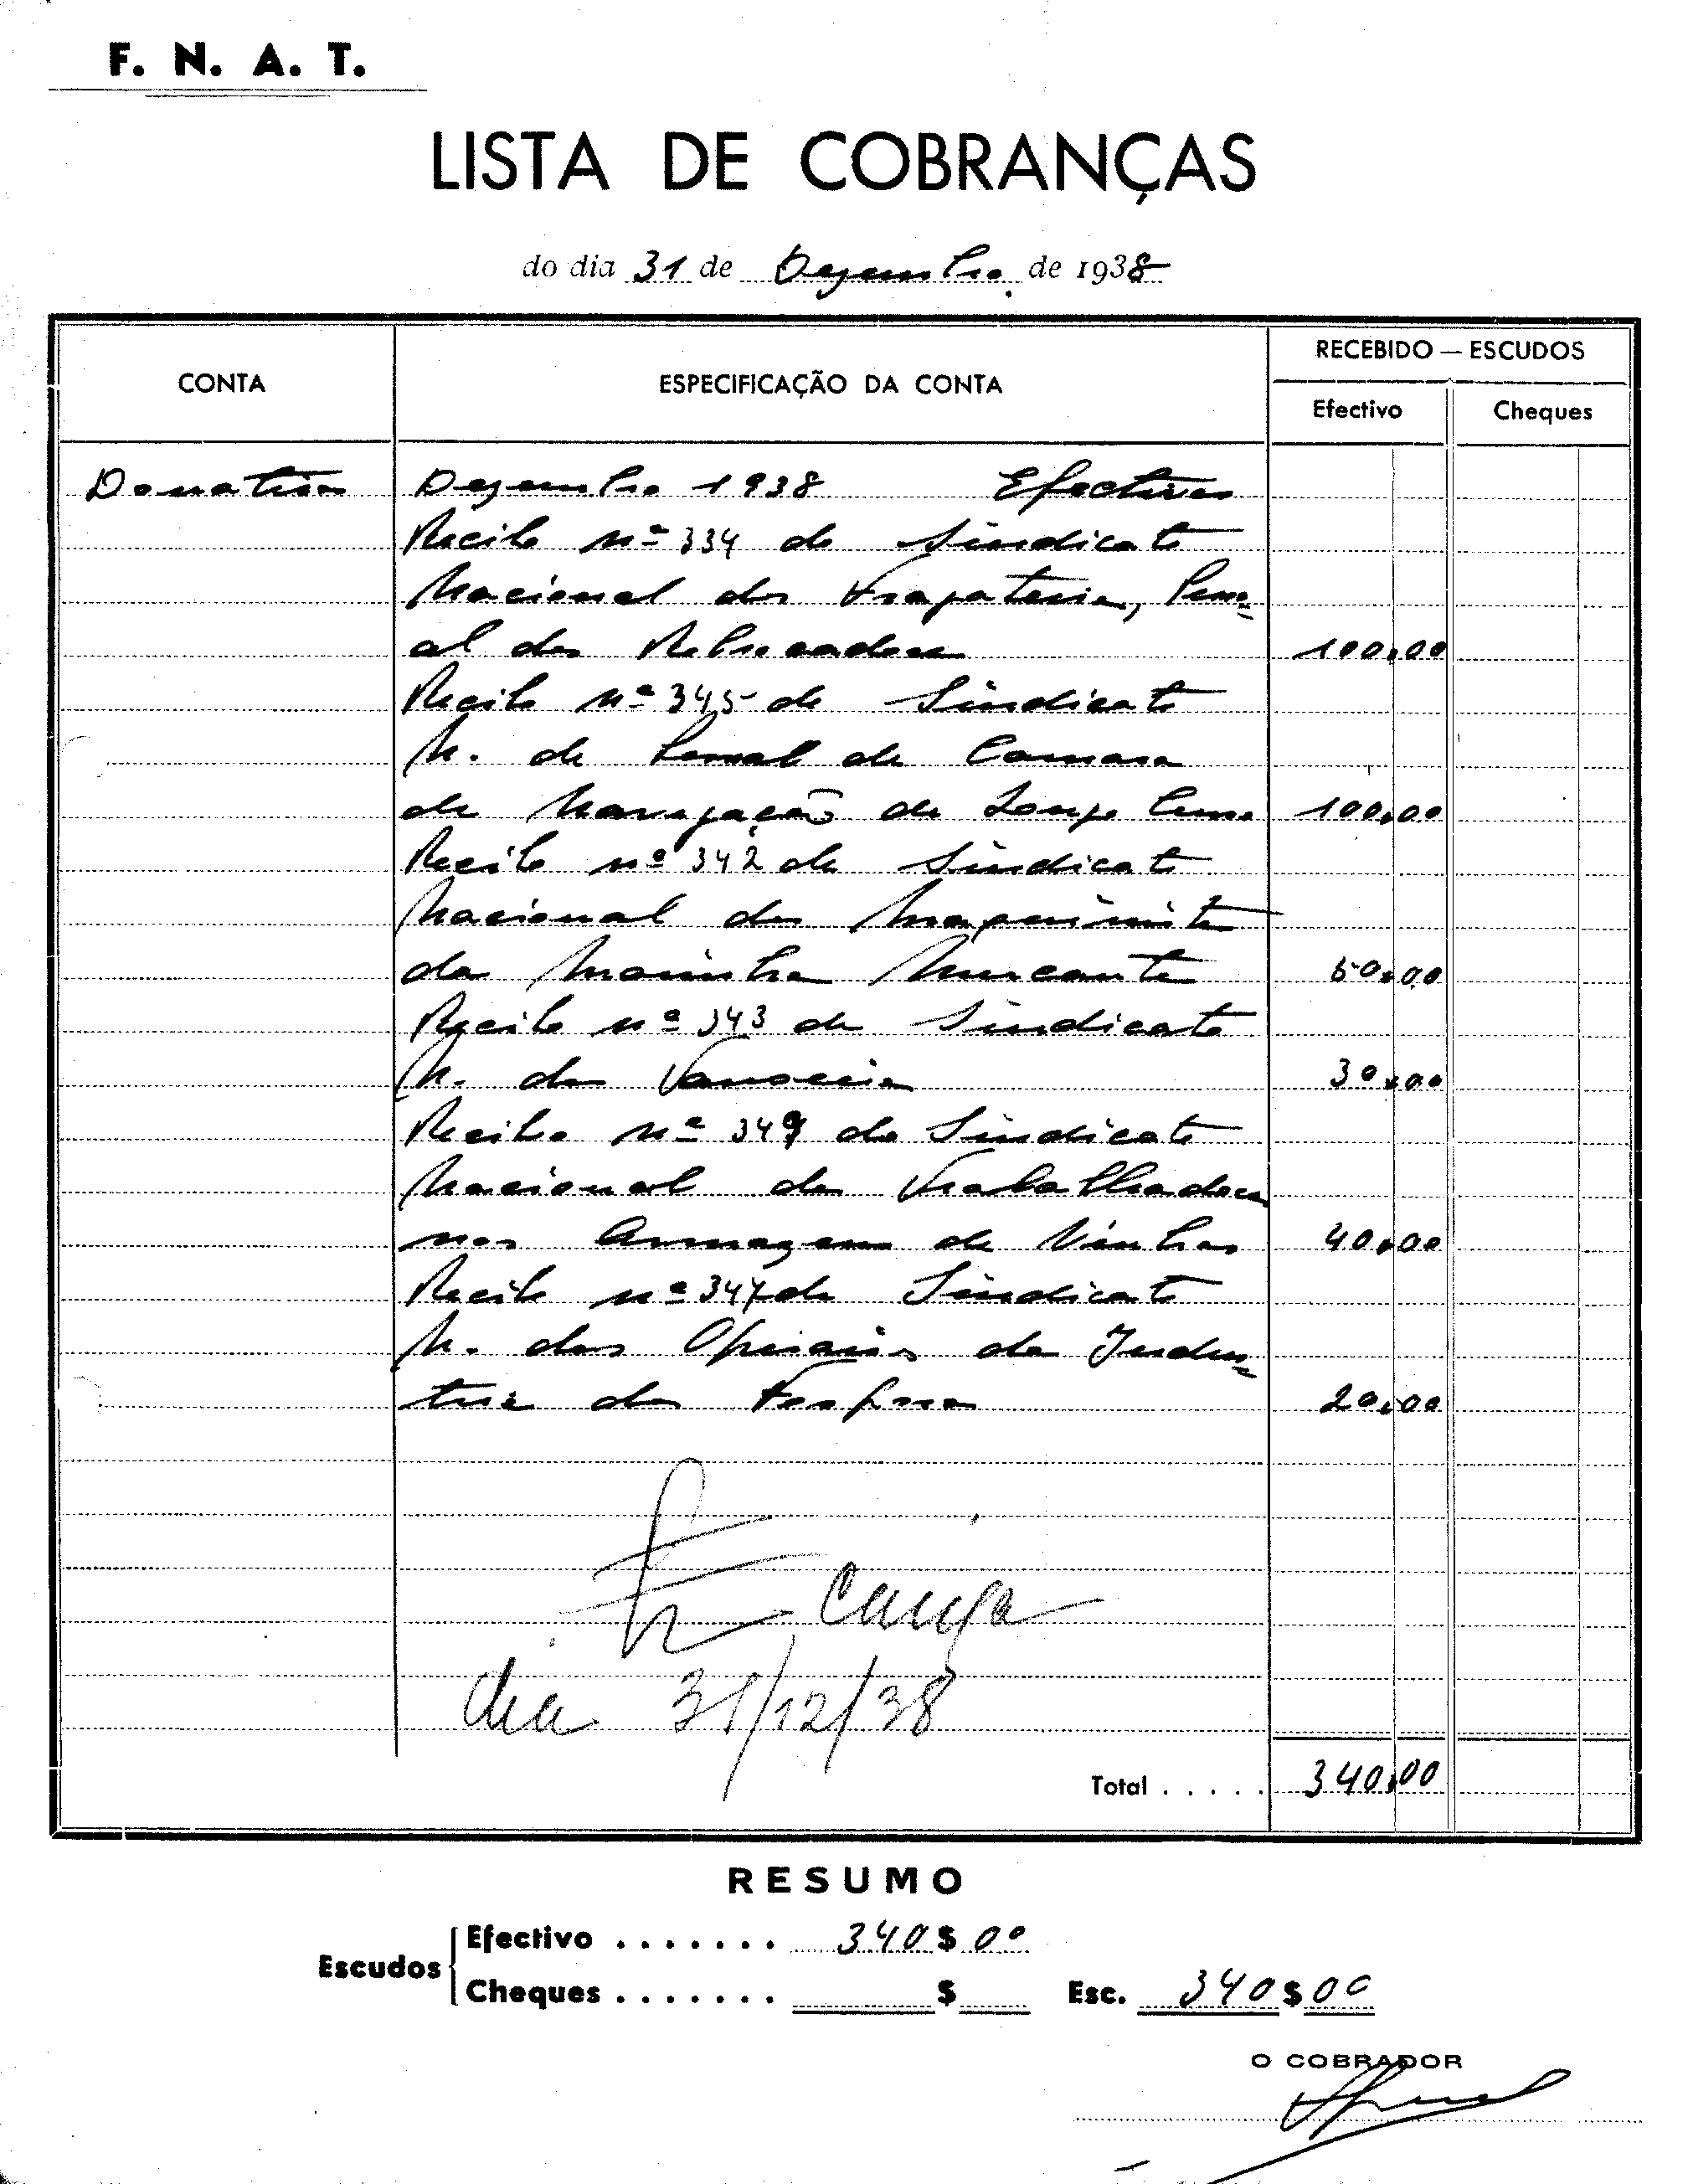 F. N. A. T.
LISTA DE COBRANÇAS
do dia 31 de Dezembro de 1938
CONTA
ESPECIFICAÇÃO DA CONTA
RECEBIDO — ESCUDOS
Efectivo
Cheques
Donativos Dezembro 1938 Efectivos
Recibo nº 334 do Sindicato
Nacional dos Fragateiros, Pesso=
al dos Rebocadores 100,00
Recibo nº 345 do Sindicato
N. do Pessoal de Camara
da Navegação de Longo Curso 100,00
Recibo nº 342 do Sindicato
Nacional dos Maquinistas
da Marinha Mercante 50,00
Recibo nº 343 do Sindicato
N. dos 30,00
Recibo nº 349 do Sindicato
Nacional dos Trabalhadores
nos Armazens de Vinhos 40,00
Recibo nº 347 do Sindicato
N. dos Operários da Indus=
tria de 20,00
Caixa
dia 31/12/38
Total ..... 340,00
RESUMO
Escudos
Efectivo ....... 340$00
Cheques ....... $ Esc. 340$00
O COBRADOR